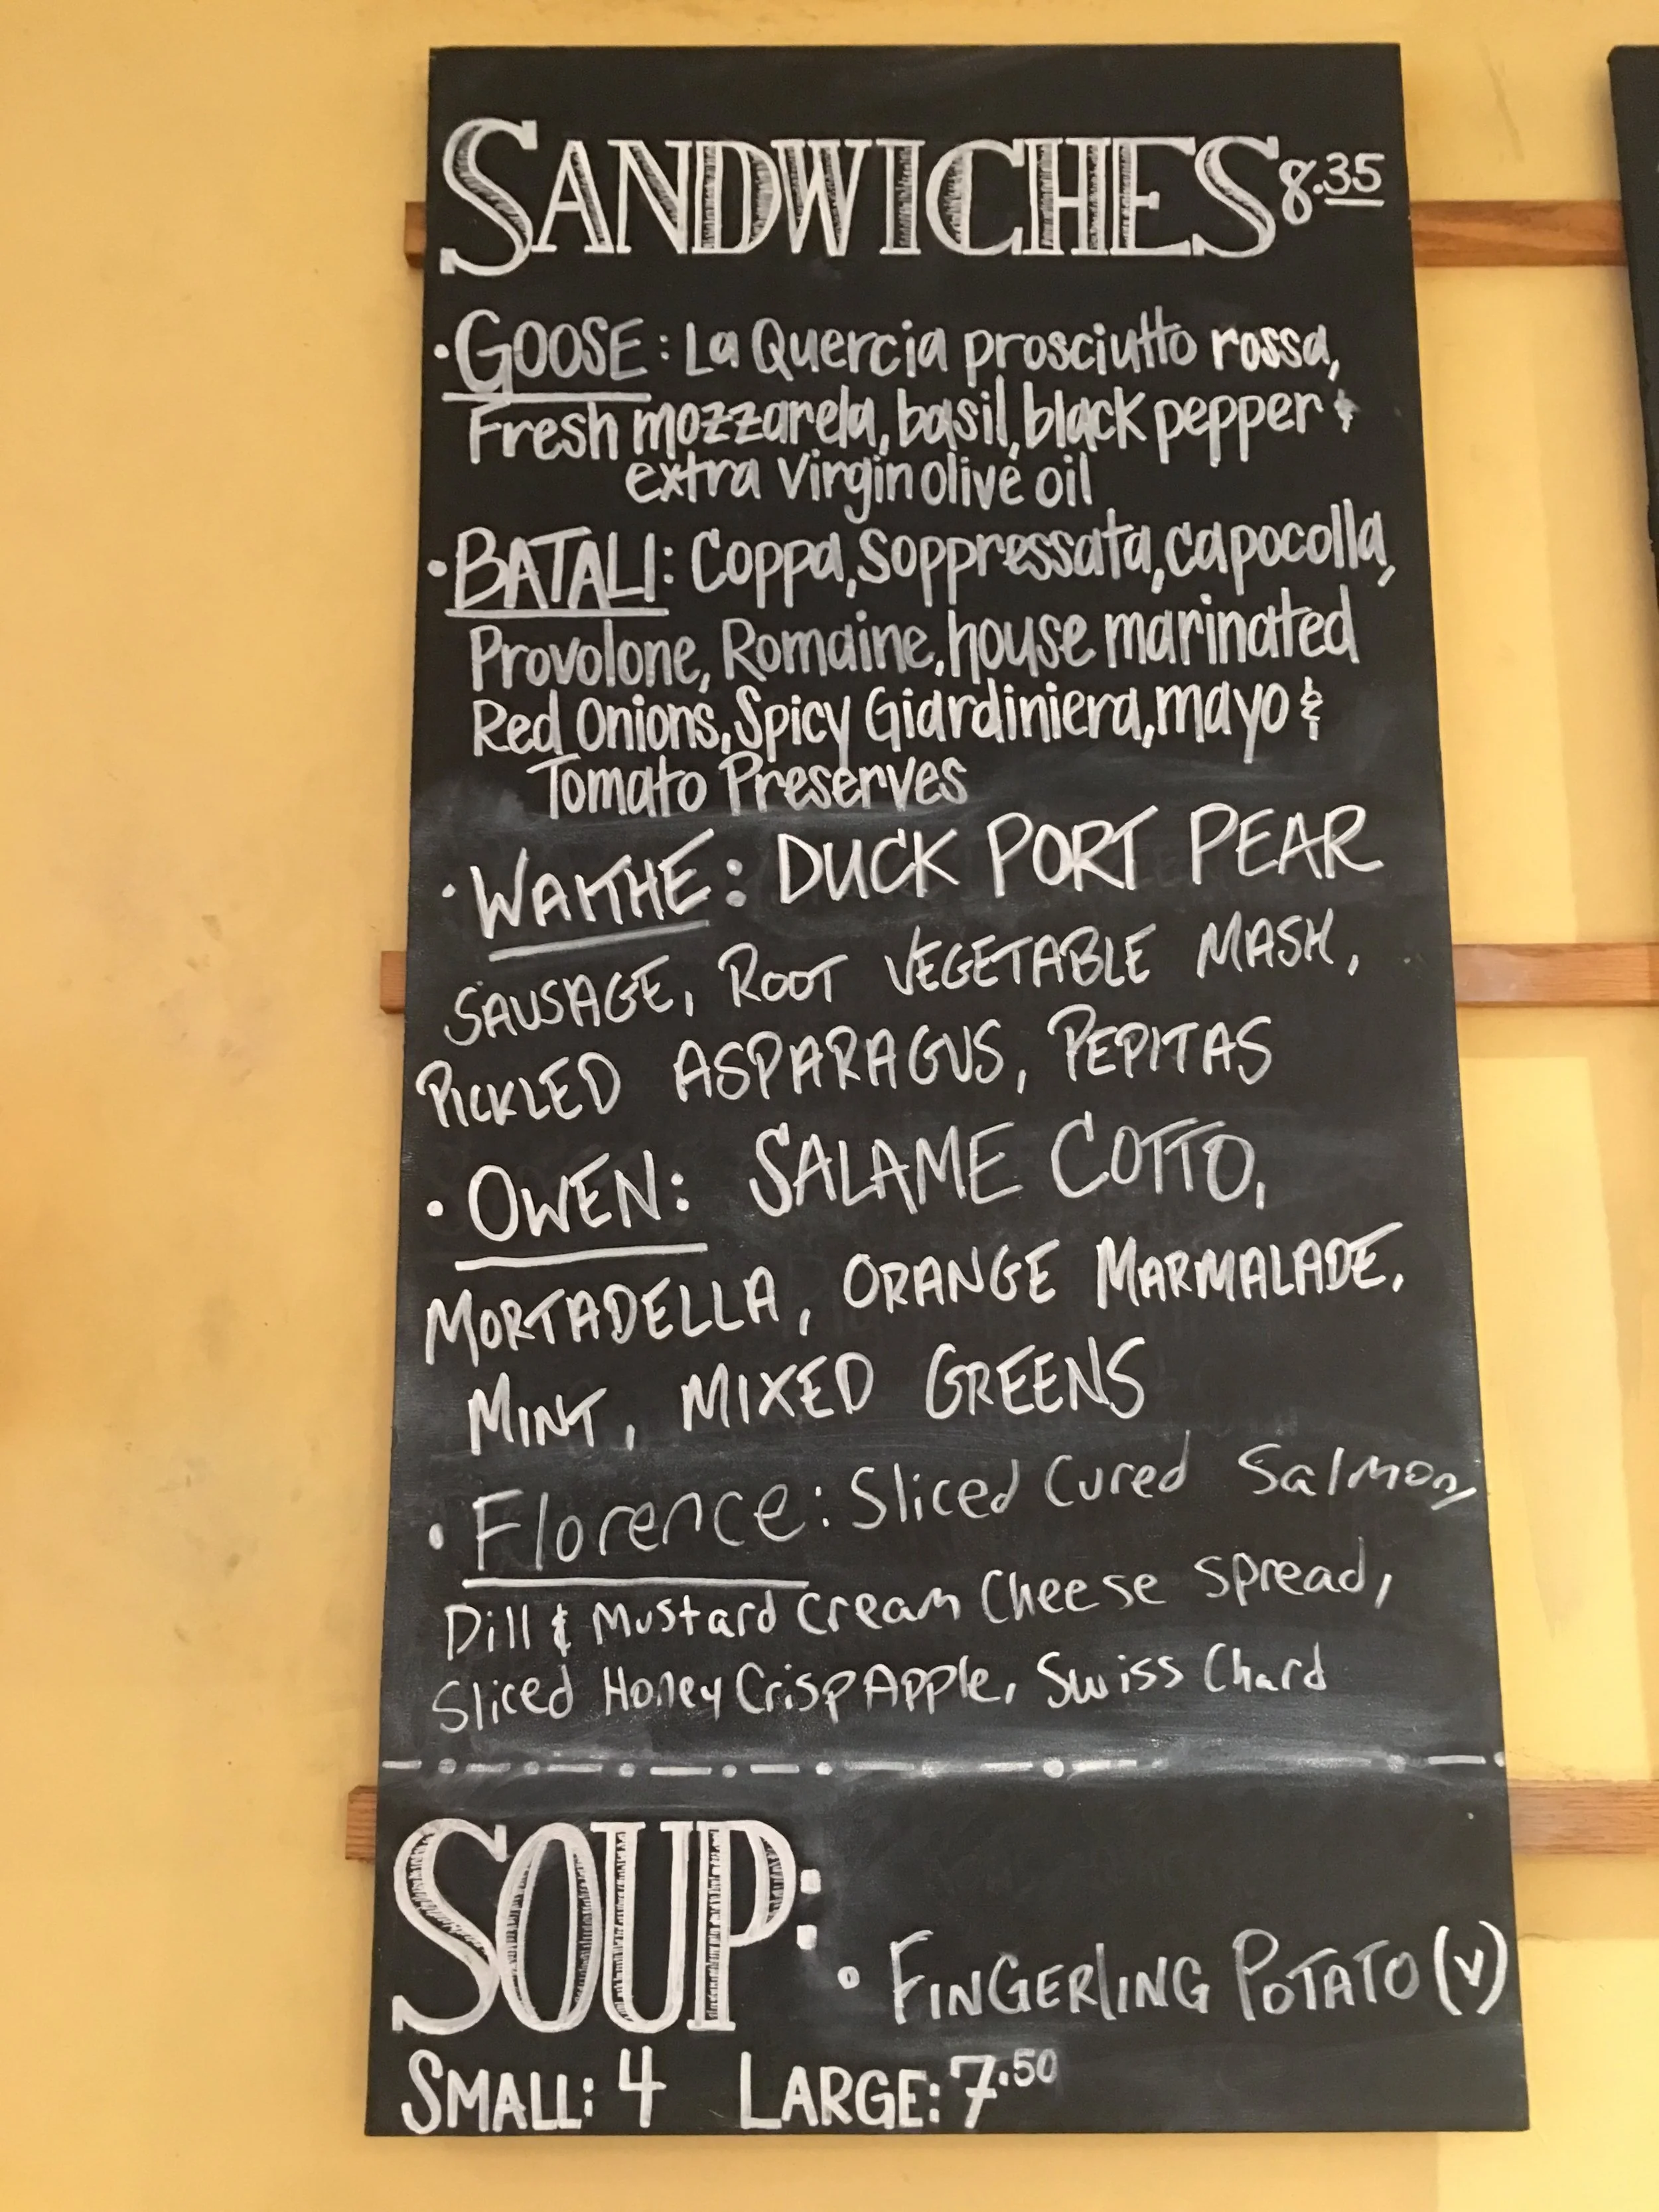 SANDWICHES 8.35
• GOOSE: La Quercia prosciutto rossa,
Fresh mozzarela, basil, black pepper &
extra virgin olive oil
• BATALI: Coppa, Soppressata, capocolla,
Provolone, Romaine, house marinated
Red Onions, Spicy Giardiniera, mayo &
Tomato Preserves
• WAKTHE: DUCK PORT PEAR
SAUSAGE, ROOT VEGETABLE MASH,
PICKLED ASPARAGUS, PEPITAS
• OWEN: SALAME COTTO,
MORTADELLA, ORANGE MARMALADE,
MINT, MIXED GREENS
• Florence: Sliced Cured Salmon,
Dill & Mustard Cream Cheese spread,
Sliced Honey Crisp Apple, Swiss Chard
SOUP:
• FINGERLING POTATO (V)
SMALL: 4 LARGE: 7.50